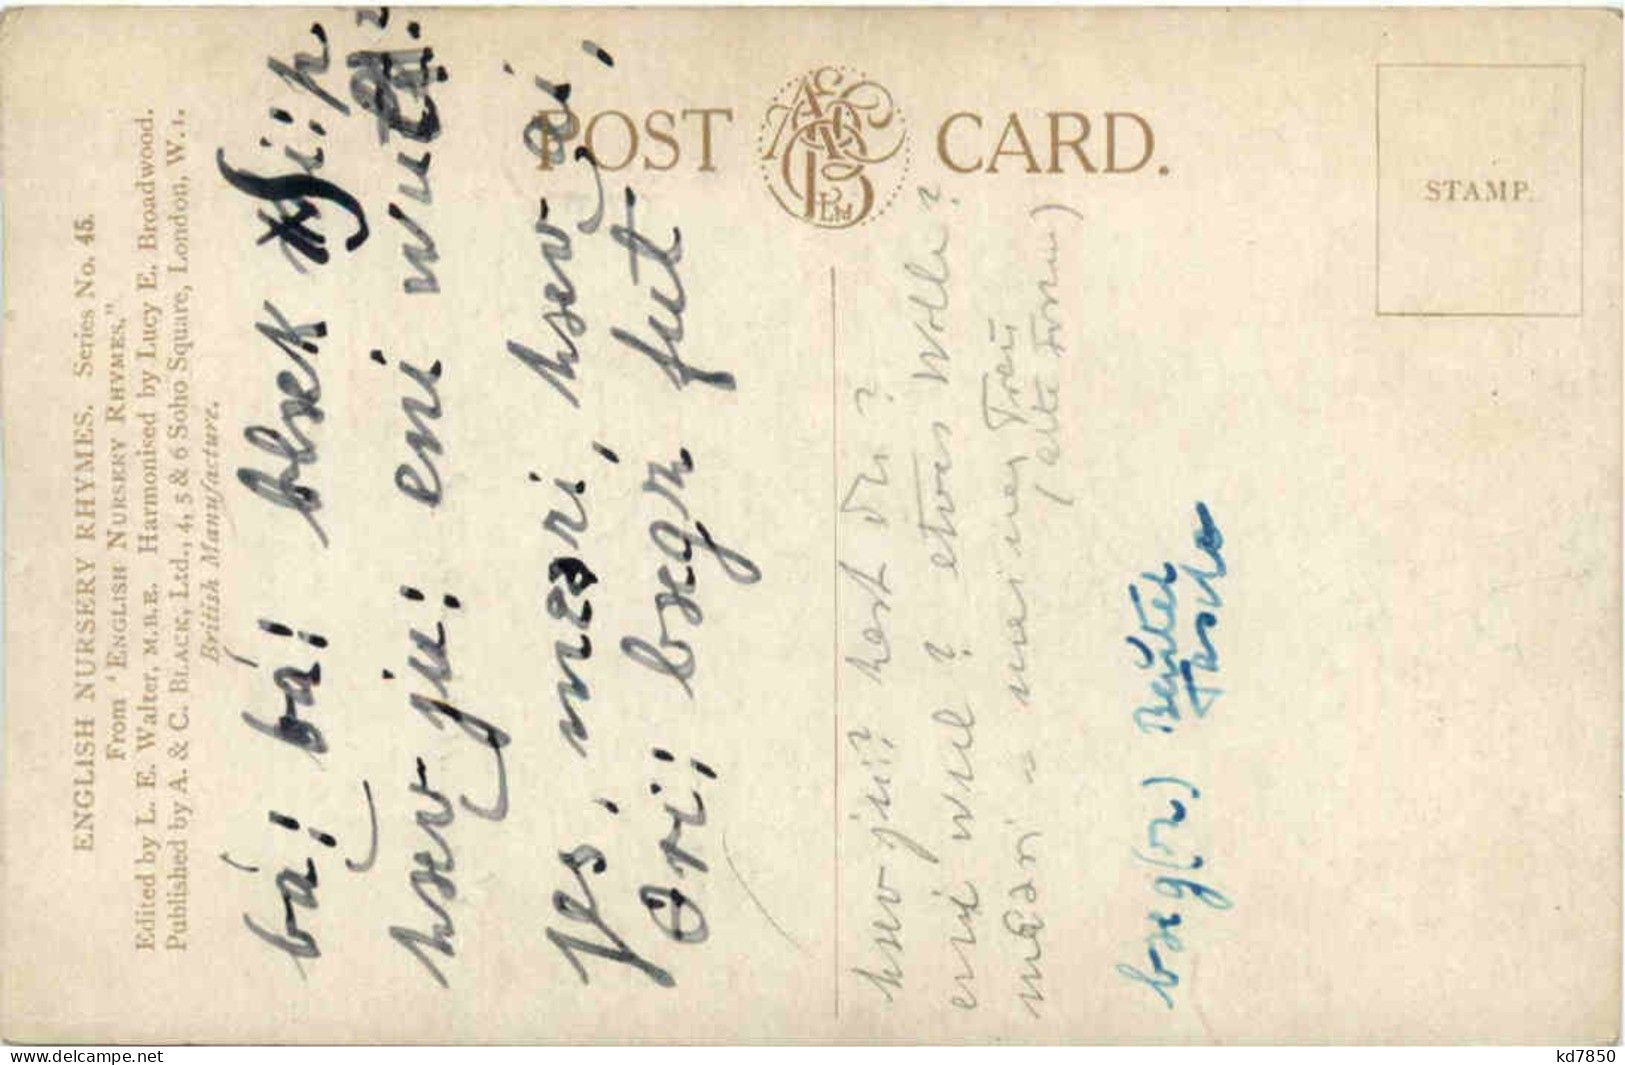 ENGLISH NURSERY RHYMES. Series No. 45.
From "ENGLISH NURSERY RHYMES,"
Edited by L. E. Walter, M.B.E. Harmonised by Lucy E. Broadwood.
Published by A. & C. BLACK, Ltd., 4, 5 & 6 Soho Square, London, W. 1.
British Manufacture.
POST CARD.
STAMP.
bá: bá: blæk ʃi:p
hæv ju: eni wul?
Jes, mæəri, hæv ai,
θri: bægz fut
hæv ju:? hast du?
eni wul? etwas Wolle?
mæəri = meiner Treu
(alte Form)
bæg(z) Beutel
Tasche
kd7850